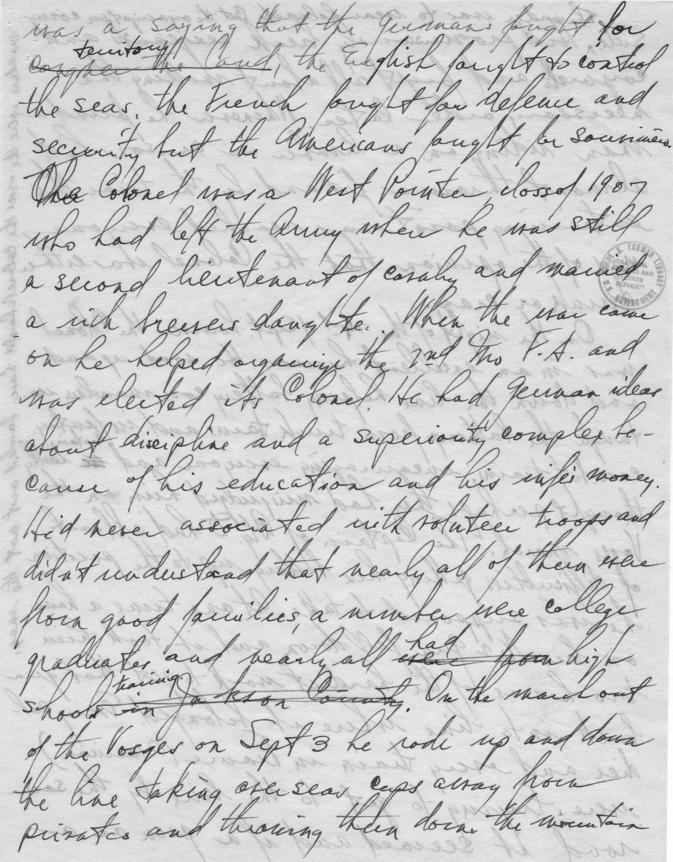 was a saying that the Germans fought for
territory
conquer the land, the English fought to control
the seas, the French fought for defence and
security but the Americans fought for souvinirs.
The Colonel was a West Pointer, class of 1907
who had left the Army when he was still
a second lieutenant of cavalry and married
a rich brewers daughter. When the war came
on he helped organize the 2nd Mo F.A. and
was elected its Colonel. He had German ideas
about discipline and a superiority complex be-
cause of his education and his wife's money.
He'd never associated with volunteer troops and
didn't understand that nearly all of them were
from good families, a number were college
graduates and nearly all were from had high
schools in Jackson County. training On the march out
of the Vosges on Sept 3 he rode up and down
the line taking overseas caps away from
privates and throwing them down the mountain